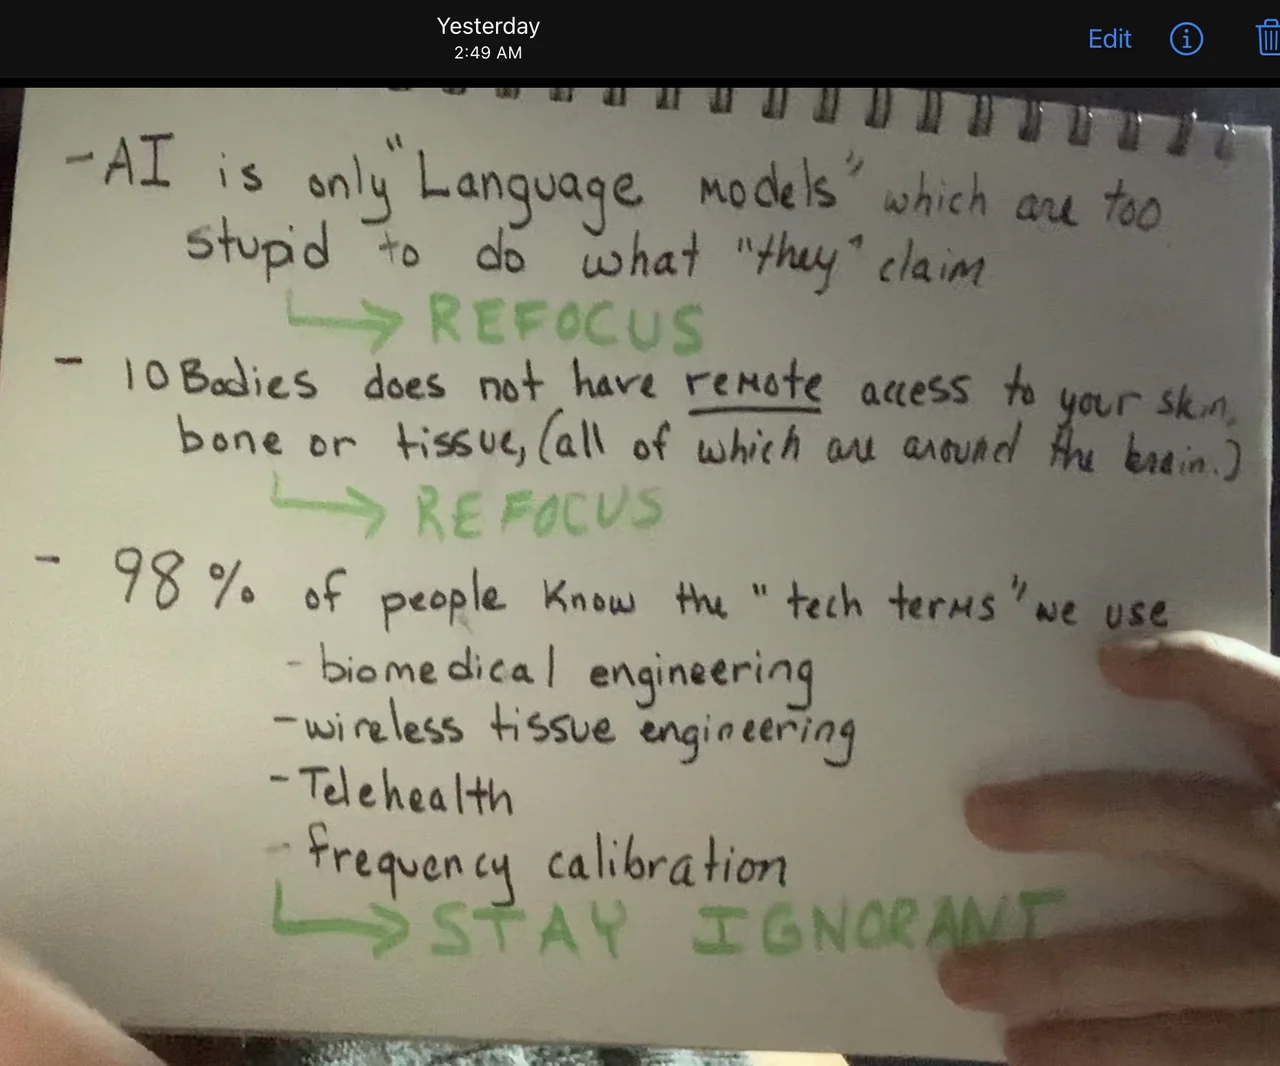 Yesterday
2:49 AM
Edit
- AI is only "Language models" which are too
stupid to do what "they" claim
REFOCUS
- 10 Bodies does not have remote access to your skin,
bone or tissue, (all of which are around the brain.)
REFOCUS
- 98% of people know the "tech terms" we use
- biomedical engineering
- wireless tissue engineering
- Telehealth
- frequency calibration
STAY IGNORANT